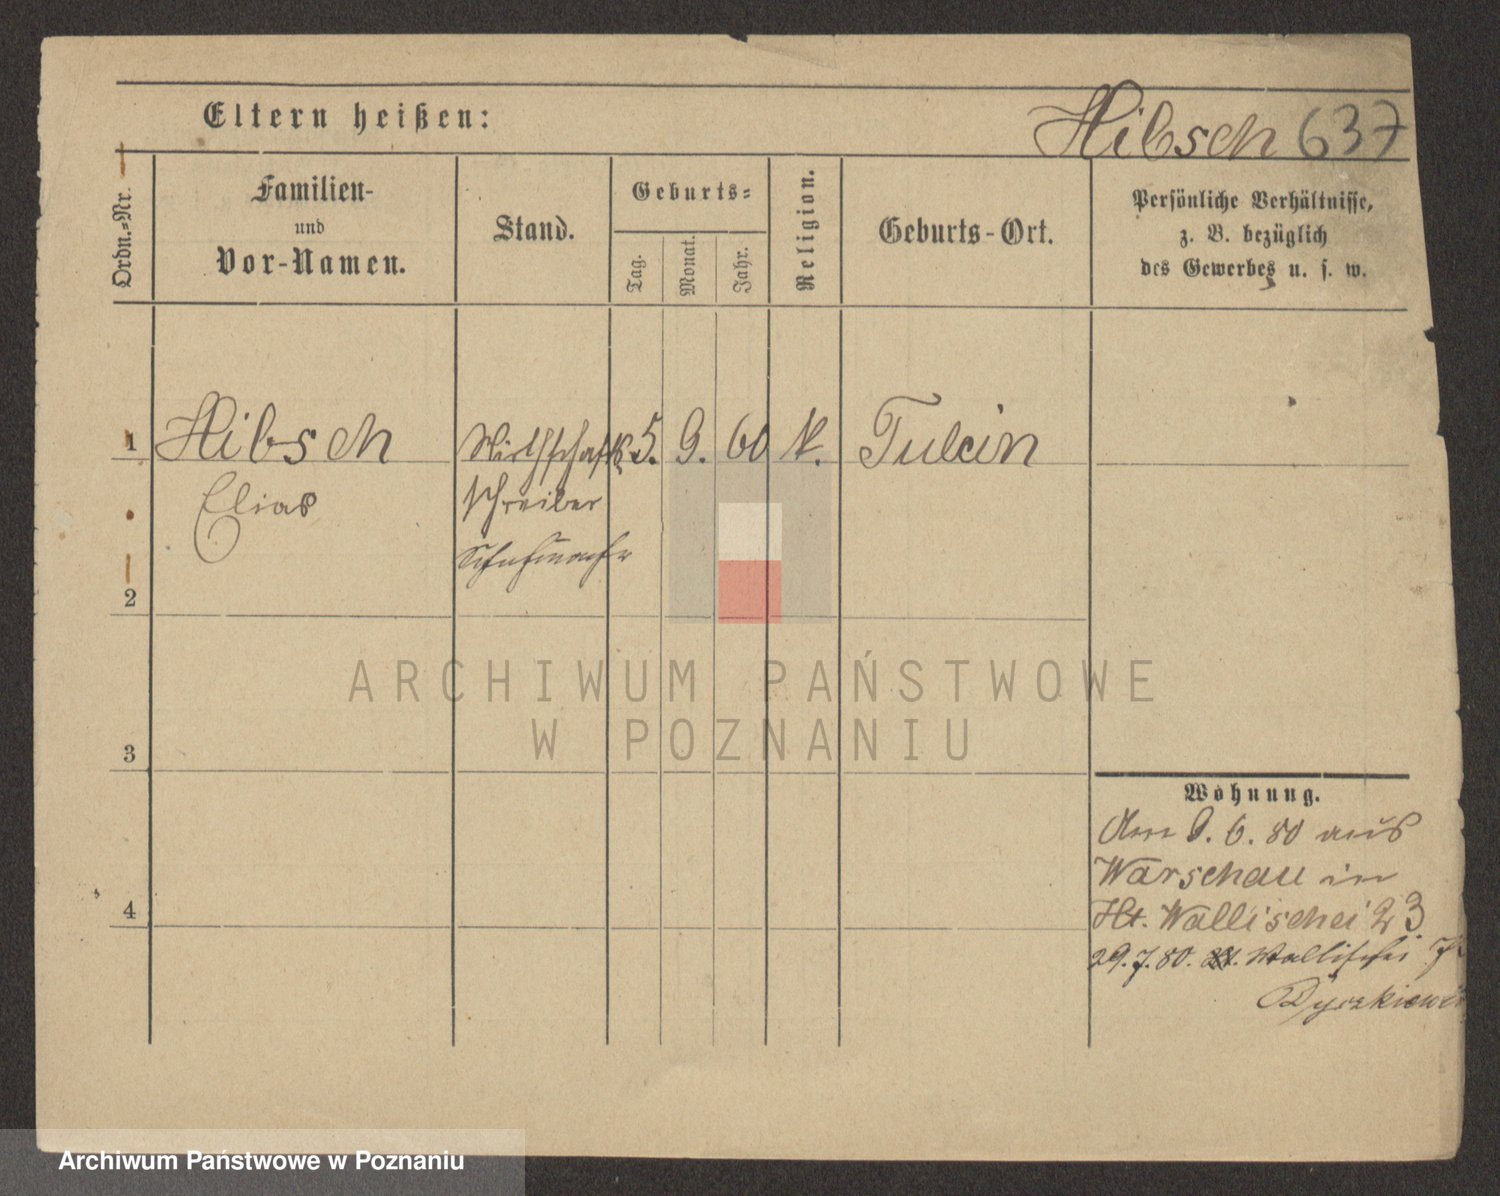 Eltern heißen:
Hibsch 637
Ordn.-Nr.
Familien-
und
Vor-Namen.
Stand.
Geburts-
Tag.
Monat.
Jahr.
Religion.
Geburts-Ort.
Persönliche Verhältnisse,
z. B. bezüglich
des Gewerbes u. s. w.
1 Hibsch Wirthschafts 5. 9. 60 K. Tulcin
Elias schreiber
Schuhmachr
2
3
4
Wohnung.
Am 9. 6. 80 aus
Warschau in
Ht. Wallischei 23
29.7.80. Wallischei
Dyszkiewi
ARCHIWUM PAŃSTWOWE
W POZNANIU
Archiwum Państwowe w Poznaniu